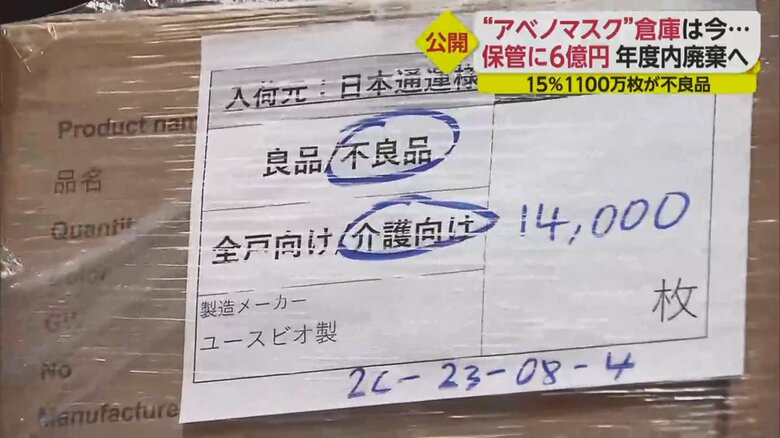 公開
“アベノマスク”倉庫は今…
保管に6億円 年度内廃棄へ
15%1100万枚が不良品
入荷元：日本通運様
良品/不良品
全戸向け/介護向け
14,000
枚
製造メーカー
ユースビオ製
2C-23-08-4
Product name
品名
Quantit
No
Manufacture